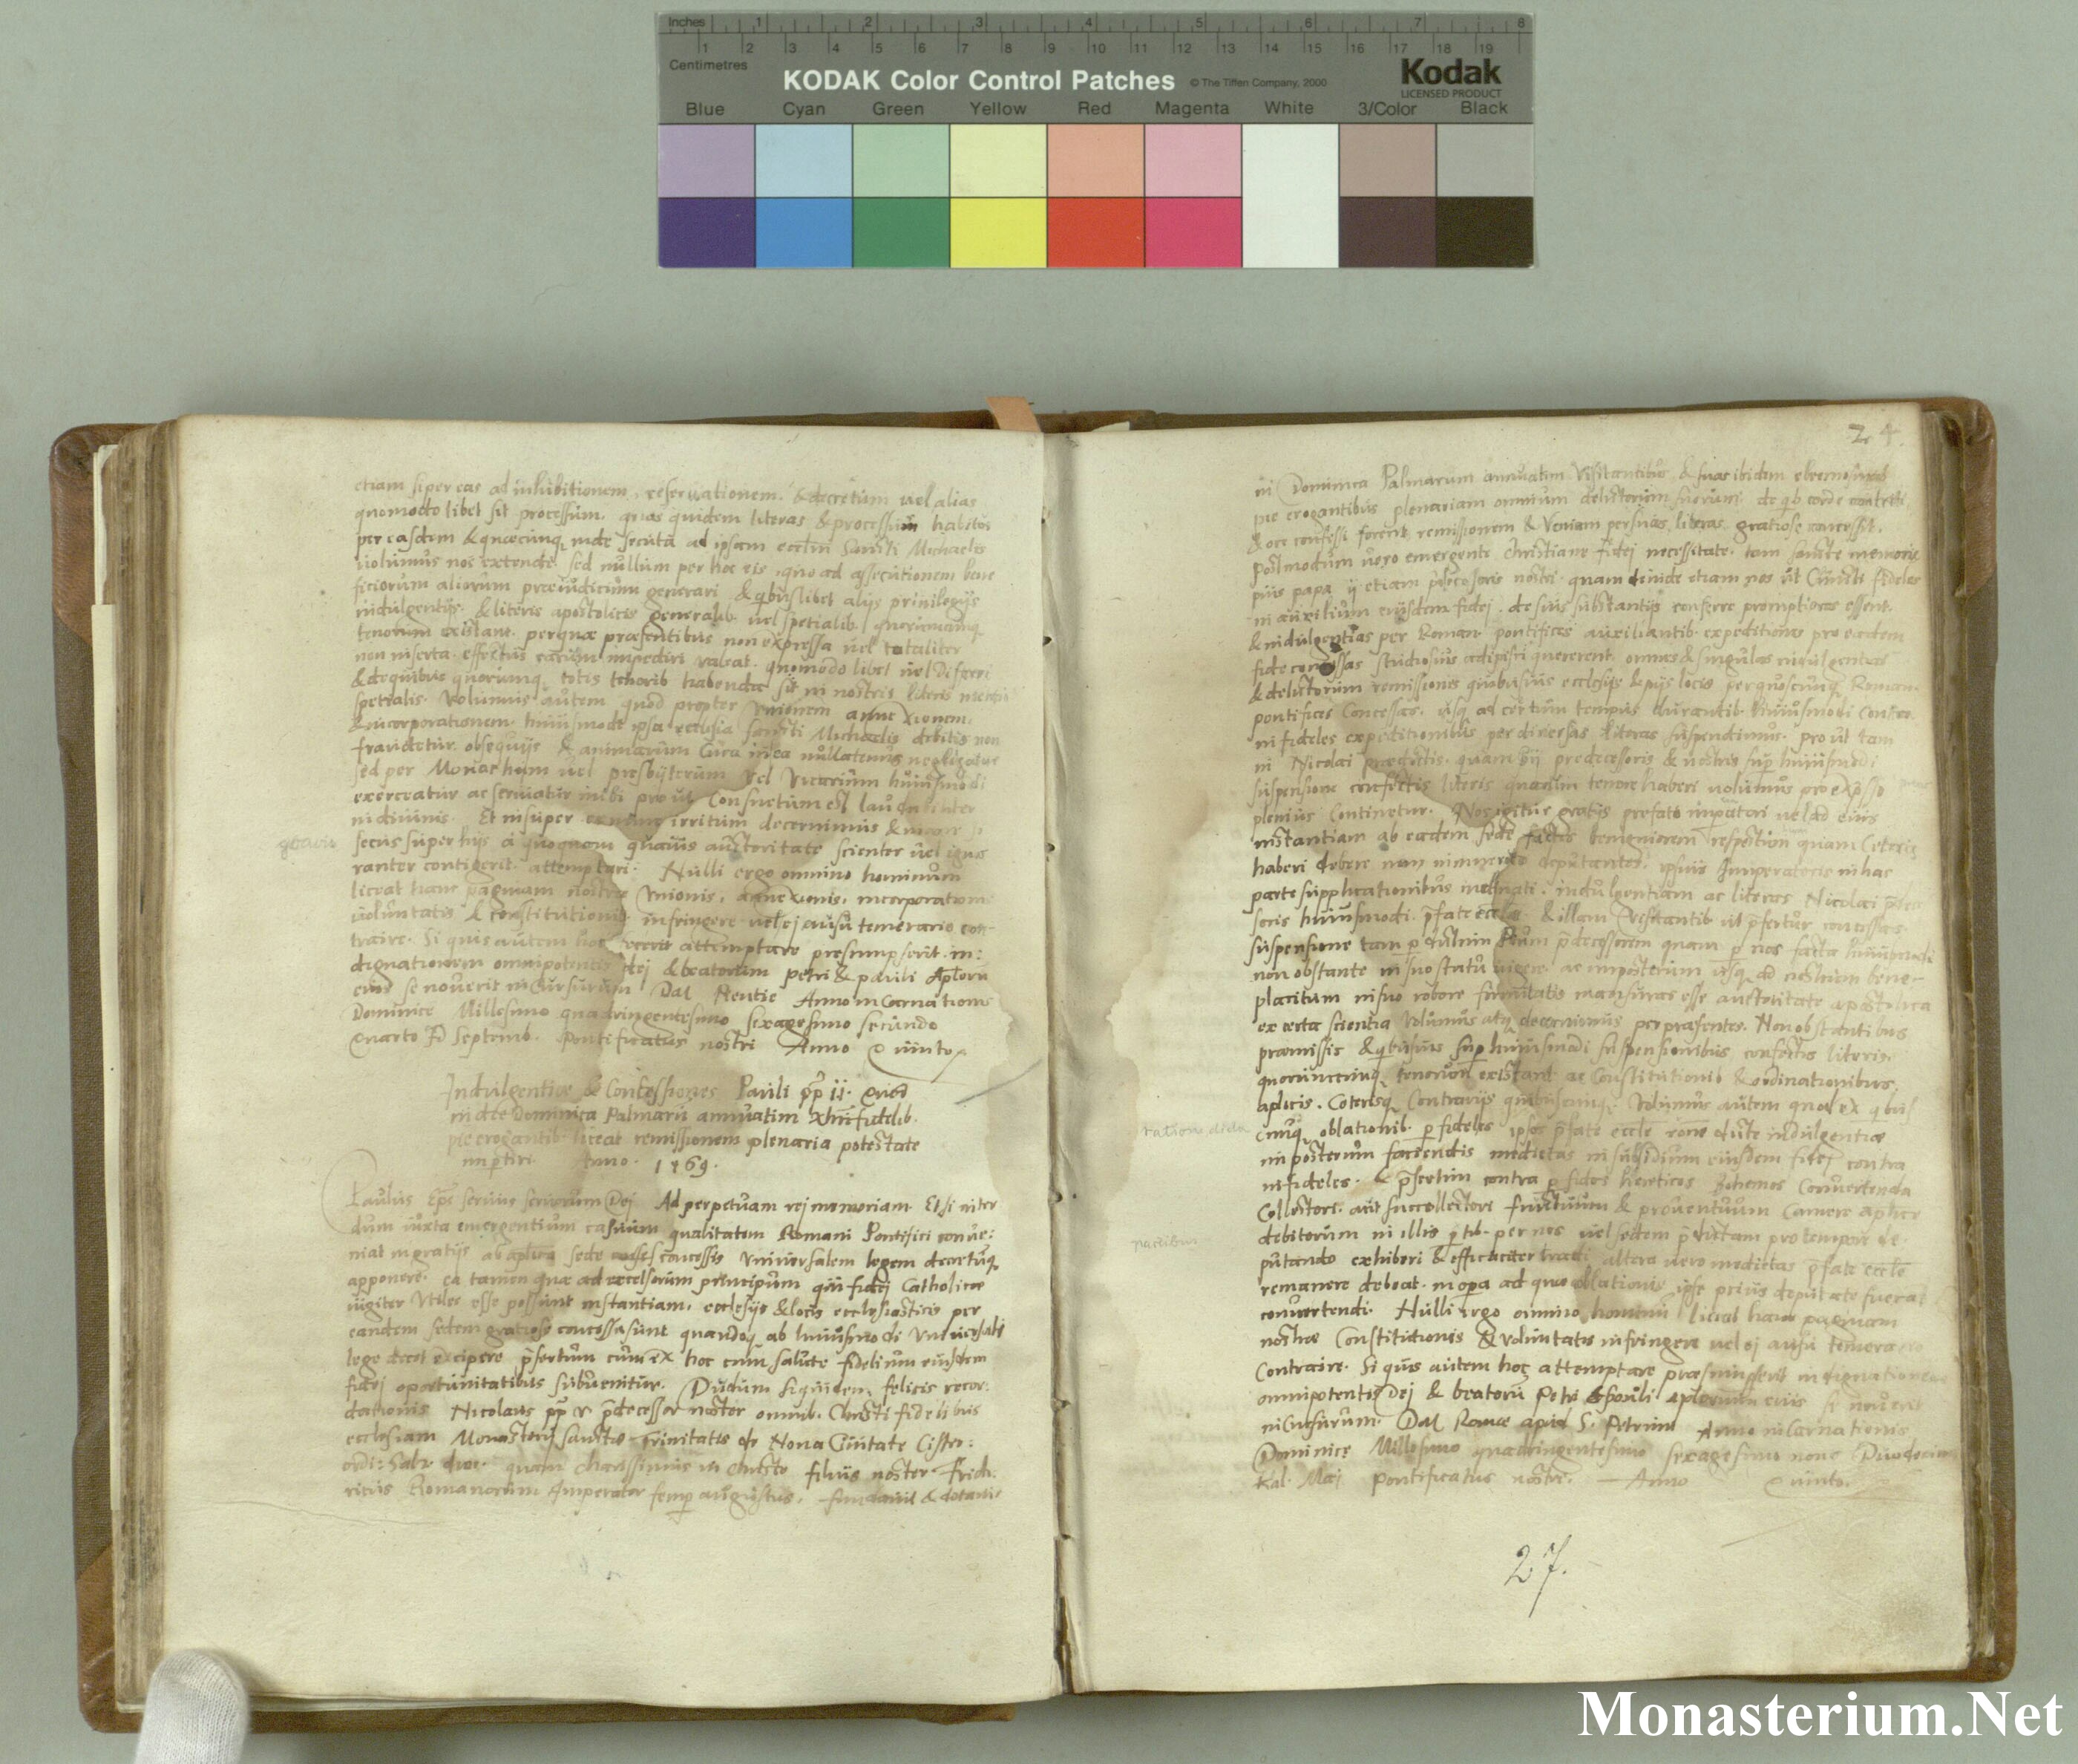 Inches 1 2 3 4 5 6 7 8
1 2 3 4 5 6 7 8 9 10 11 12 13 14 15 16 17 18 19
Centimetres
KODAK Color Control Patches © The Tiffen Company, 2000 Kodak
LICENSED PRODUCT
Blue Cyan Green Yellow Red Magenta White 3/Color Black
etiam super eas ad inhibitionem, reservationem, & decretum vel alias
quomodo libet sit processum. quas quidem literas & processum habitos
per easdem & quæcunq inde secuta ad ipsam eccliam Sancti Michaelis
volumus non extendi sed nullum per hoc eis, quo ad assecutionem bene
ficiorum aliorum præiudicium generari & qbuslibet alijs privilegijs
indulgentijs & literis apostolicis generalib vel spetialib quorumcunq
tenorum existant. per quæ præsentibus non expressa vel totaliter
non inserta effectus earum impediri valeat quomodo libet vel differri
& de quibus quorumq totis tenorib habenda sit in nostris literis mentio
spetialis. Volumus autem quod propter Unionem annexionem
& incorporationem huiusmodi ipsa ecclesia sancti Michaelis debitis non
fraudetur obsequijs & animarum Cura in ea nullatenus negligatur
sed per Monachum vel presbyterum vel vicarium huiusmodi
exerceatur ac serviatur inibi pro ut Consuetum est laudabiliter
in divinis. Et insuper irritum decernimus & inane
secus super hijs à quoquam quavis auctoritate scienter vel igno
ranter contigerit attemptari. Nulli ergo omnino hominum
liceat hanc paginam nostre Unionis, annexionis, incorporationis
voluntatis & constitutionis infringere vel ej ausu temerario con-
traire. Si quis autem hoc attemptare presumpserit in:
dignationem omnipotentis dej & beatorum petri & pauli Aplorum
eius se noverit incursurum Dat Anno incarnationis
Dominice Millesimo quadringentesimo sexagesimo secundo
Quarto Septemb. Pontificatus nostri Anno Quinto
Indulgentiæ & Concessiones Pauli pp ii. Quod
in die Dominica Palmarum annuatim
pie erogantib liceat remissionem plenaria potestate
impetiri Anno 1469.
Paulus Eps servus servorum Dej Ad perpetuam rej memoriam Etsi inter
dum iuxta emergentium casuum qualitatem Romani Pontifici conve:
niat in gratijs ab aplica sede concessis universalem legem decretumq
apponere. ea tamen quæ ad excelsorum principum qui fidej Catholicæ
iugiter Utiles esse possunt instantiam, ecclesijs & locis ecclesiasticis per
eandem sedem gratiose concessa sunt quandoq ab huiusmodi universali
lege decet excipere psertim cum ex hoc cum salute fidelium eiusdem
fidej oportunitatibus subvenitur. Dudum siquidem felicis recor:
dationis Nicolaus pp v pdecessor noster omnib. Christi fidelibus
ecclesiam Monasterij sanctæ Trinitatis de Nova Civitate Cister:
ordi: Salz. dioc. quam charissimus in Christo filius noster Frid:
ricus Romanorum Imperator semp augustus, fundavit & dotavit
24.
in Dominica Palmarum annuatim Visitantibus & suas ibidem elemosinas
pie erogantibus plenariam omnium delictorum suorum de qb corde contriti
& ore confessi forent remissionem & Veniam per suas literas gratiose concessit.
Postmodum vero emergente Christiane fidej necessitate tam sancte memorie
pius papa ij etiam pdecessoris nostri quam deinde etiam nos ut Cuncti fideles
in auxilium eiusdem fidej de suis substantijs conferre promptiores essent
& indulgentias per Roman pontifices auxiliantib expeditiones pro eadem
fide concessas studiosius adipisci quererent, omnes & singulas indulgentias
& delictorum remissiones quibusvis ecclesijs & pijs locis per quoscunq Roman
pontifices Concessas, usq ad certum tempus durantib huiusmodi Contra
infideles expeditionibus per diversas literas suspendimus. prout tam
in Nicolai prædictis, quam pij predecessoris & nostris sup huiusmodi
suspensione confectis literis quarum tenore haberi volumus pro expresso
plenius Continetur. Nos igitur gratijs prefato imperatori vel ad eius
instantiam ab eadem sede factis benigniorem respectum quam Ceteris
haberi debere non immerito deputantes, ipsius Imperatoris in hac
parte supplicationibus inclinati, indulgentiam ac literas Nicolai
soris huiusmodi pfate eccle & illam Visitantib ut pfertur concessas
suspensione tam p dictum Pium pdecessorem quam p nos facta huiusmodi
non obstante in suo statu vigere ac imposterum usq ad nostrum bene-
placitum in suo robore firmitatis mansuras esse auctoritate apostolica
ex certa scientia Volumus atq decernimus per præsentes. Non obstantibus
præmissis & qbusvis sup huiusmodi suspensionibus confectis literis
quorumcunq tenorum existant ac Constitutionib & ordinationibus
aplicis. Coterisq Contrarijs quibuscunq. Volumus autem quod ex qbus
cunq oblationib p fideles ipsos pfate eccle rone dicte indulgentiæ
imposterum faciendis medietas in subsidium eiusdem fidej contra
infideles. & psertim contra pfidos hereticos Bohemos Convertenda
Collectori aut succollectori fructuum & proventuum Camere aplice
debitorum in illis ptib per nos vel sedem pdictam pro tempore de
putando exhiberi & efficaciter tradi altera vero medietas pfate eccle
remanere debeat in opa ad quæ oblationes ipse prius deputate fuerat
convertendi. Nulli ergo omnino homini liceat hanc paginam
nostræ Constitutionis & voluntatis infringere vel ei ausu temerario
Contraire. Si quis autem hoc attemptare præsumpserit indignationem
omnipotentis Dej & beatorum Petri & pauli aplorum eius se noverit
incursurum. Dat Romæ apud S. Petrum Anno incarnationis
Dominicę Millesimo quadringentesimo sexagesimo nono Duodecimo
Kal. Maj pontificatus nostri. Anno Quinto.
partibus
27.
Monasterium.Net